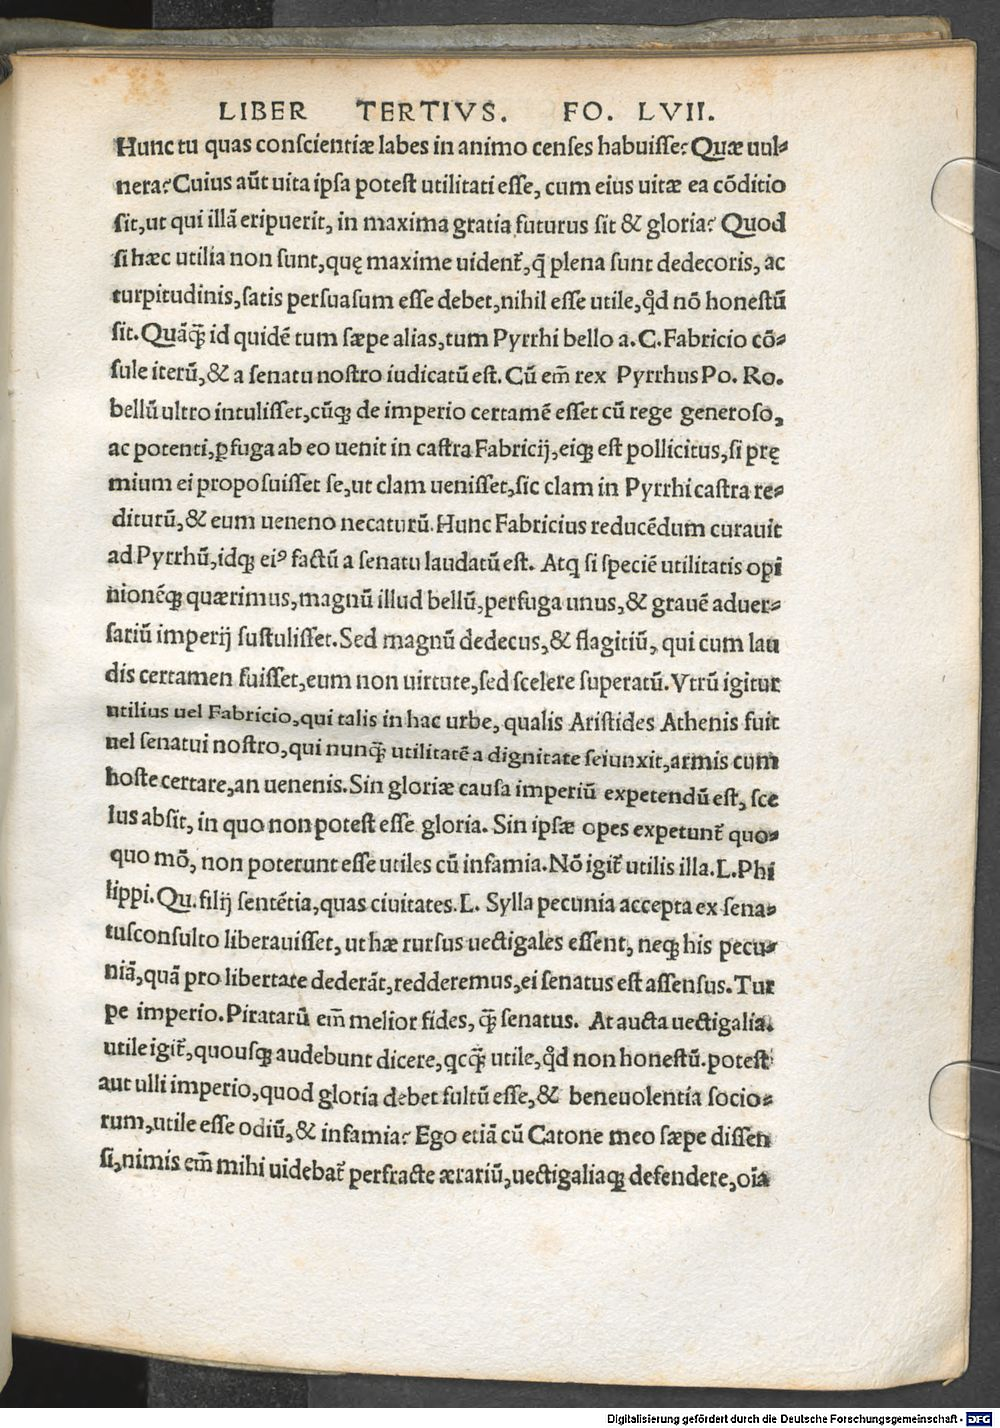 LIBER TERTIVS. FO. LVII.
Hunc tu quas conſcientiæ labes in animo cenſes habuiſſe? Quæ uul-
nera? Cuius aūt uita ipſa poteſt utilitati eſſe, cum eius uitæ ea cōditio
ſit, ut qui illā eripuerit, in maxima gratia futurus ſit & gloria? Quod
ſi hæc utilia non ſunt, quę maxime uident᷑, q̄ plena ſunt dedecoris, ac
turpitudinis, ſatis perſuaſum eſſe debet, nihil eſſe utile, qd̓ nō honeſtū
ſit. Quāq̄ꝫ id quidē tum ſæpe alias, tum Pyrrhi bello a. C. Fabricio cō-
ſule iterū, & a ſenatu noſtro iudicatū eſt. Cū em̄ rex Pyrrhus Po. Ro.
bellū ultro intuliſſet, cūqꝫ de imperio certamē eſſet cū rege generoſo,
ac potenti, ꝑfuga ab eo uenit in caſtra Fabricij, eiqꝫ eſt pollicitus, ſi prę
mium ei propoſuiſſet ſe, ut clam ueniſſet, ſic clam in Pyrrhi caſtra re-
diturū, & eum ueneno necaturū. Hunc Fabricius reducēdum curauit
ad Pyrrhū, idqꝫ eiꝰ factū a ſenatu laudatū eſt. Atqꝫ ſi ſpeciē utilitatis opi
nionēqꝫ quærimus, magnū illud bellū, perfuga unus, & grauē aduer-
ſariū imperij ſuſtuliſſet. Sed magnū dedecus, & flagitiū, qui cum lau
dis certamen fuiſſet, eum non uirtute, ſed ſcelere ſuperatū. Vtrū igitur
utilius uel Fabricio, qui talis in hac urbe, qualis Ariſtides Athenis fuit
uel ſenatui noſtro, qui nunq̄ꝫ utilitatē a dignitate ſeiunxit, armis cum
hoſte certare, an uenenis. Sin gloriæ cauſa imperiū expetendū eſt, ſce
lus abſit, in quo non poteſt eſſe gloria. Sin ipſæ opes expetunt᷑ quo-
quo mō, non poterunt eſſe utiles cū infamia. Nō igit᷑ utilis illa. L. Phi
lippi. Qu. filij ſentētia, quas ciuitates. L. Sylla pecunia accepta ex ſena-
tusconſulto liberauiſſet, ut hæ rurſus uectigales eſſent, neqꝫ his pecu-
niā, quā pro libertate dederāt, redderemus, ei ſenatus eſt aſſenſus. Tur
pe imperio. Piratarū em̄ melior fides, q̄ꝫ ſenatus. At aucta uectigalia.
utile igit᷑, quouſqꝫ audebunt dicere, qcq̄ꝫ utile, qd̓ non honeſtū. poteſt
aut ulli imperio, quod gloria debet fultū eſſe, & beneuolentia ſocio-
rum, utile eſſe odiū, & infamia? Ego etiā cū Catone meo ſæpe diſſen
ſi, nimis em̄ mihi uidebat᷑ perfracte ærariū, uectigaliaqꝫ defendere, oīa
Digitalisierung gefördert durch die Deutsche Forschungsgemeinschaft - DFG